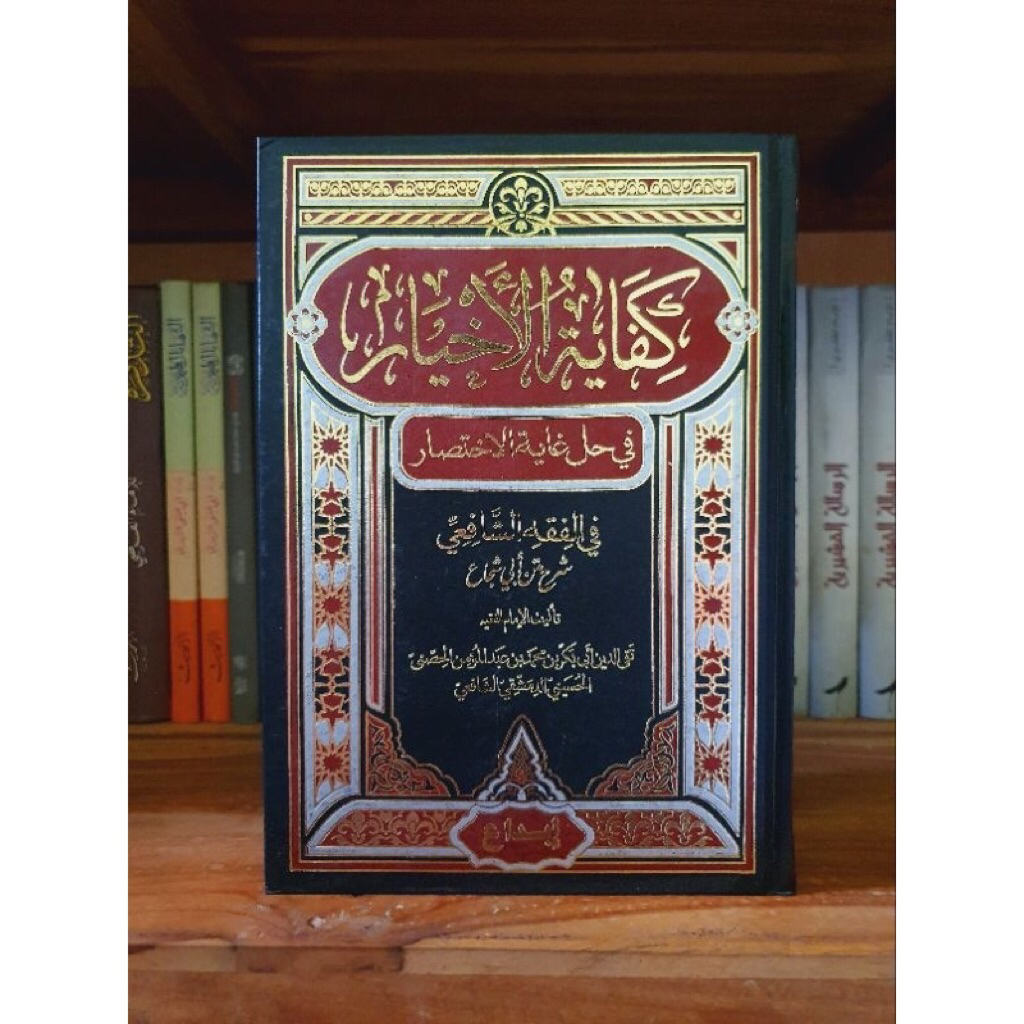 كِفَايَةُ الْأَخْيَار
في حل غاية الاختصار
في الفِقهِ الشَّافِعِيِّ
شرح متن أبي شجاع
تأليف الإمام الفقيه
تقي الدين أبي بكر بن محمد بن عبد المؤمن الحصني
الحسيني الدمشقي الشافعي
إبداع
الرسالة القشيرية
الرسالة القشيرية